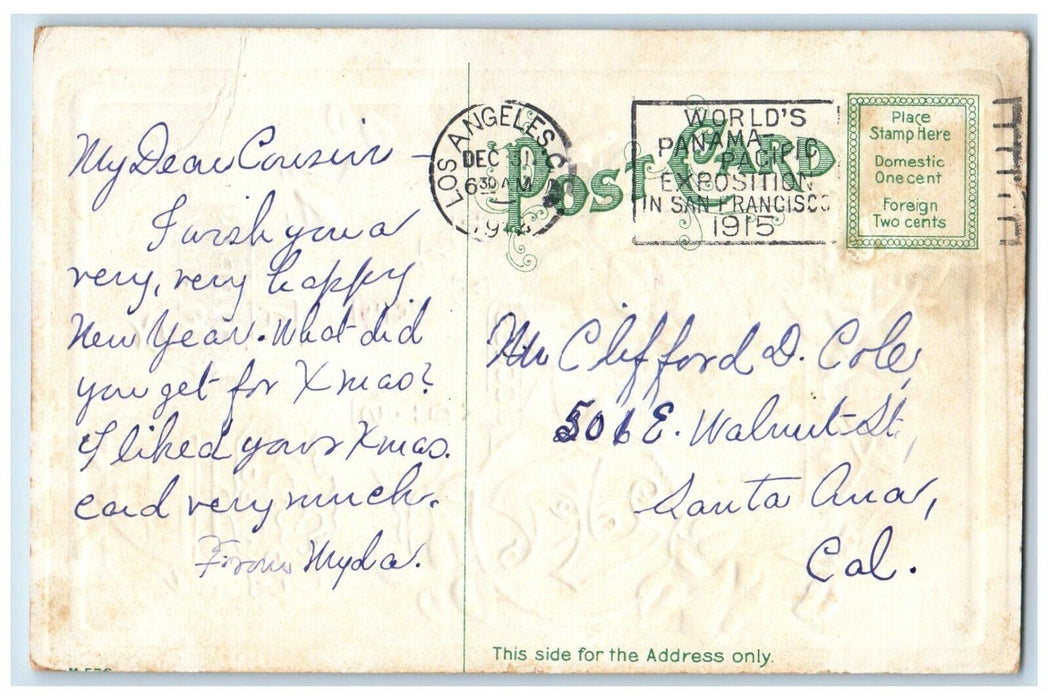 My Dear Cousin -
I wish you a
very, very happy
New Year. What did
you get for Xmas?
I liked your Xmas.
card very much.
From Myda.
LOS ANGELES, CAL
DEC 31
6 30 AM
191
POST CARD
WORLD'S
PANAMA-
PACIFIC
EXPOSITION
IN SAN FRANCISCO
1915
Place
Stamp Here
Domestic
One cent
Foreign
Two cents
Mr Clifford D. Cole,
506 E. Walnut St,
Santa Ana,
Cal.
This side for the Address only.